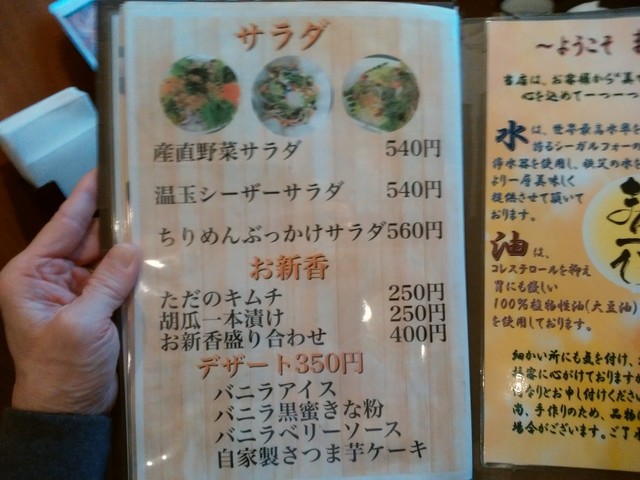 サラダ
産直野菜サラダ 540円
温玉シーザーサラダ 540円
ちりめんぶっかけサラダ560円
お新香
ただのキムチ 250円
胡瓜一本漬け 250円
お新香盛り合わせ 400円
デザート350円
バニラアイス
バニラ黒蜜きな粉
バニラベリーソース
自家製さつま芋ケーキ
～ようこそ
当店は、お客様から“美
心を込めて一つ一つ
水は、世界最高水準を
誇るシーガルフォーの
浄水器を使用し、秩父の水を
より一層美味しく
提供させて頂いて
おります。
油は、
コレステロールを抑え
胃にも優しい
100%植物性油(大豆油)
を使用しております。
細かい所にも気を付け、
接客に心がけておりますが
何なりとお申し付けください
尚、手作りのため、品物
場合がございます。ご了